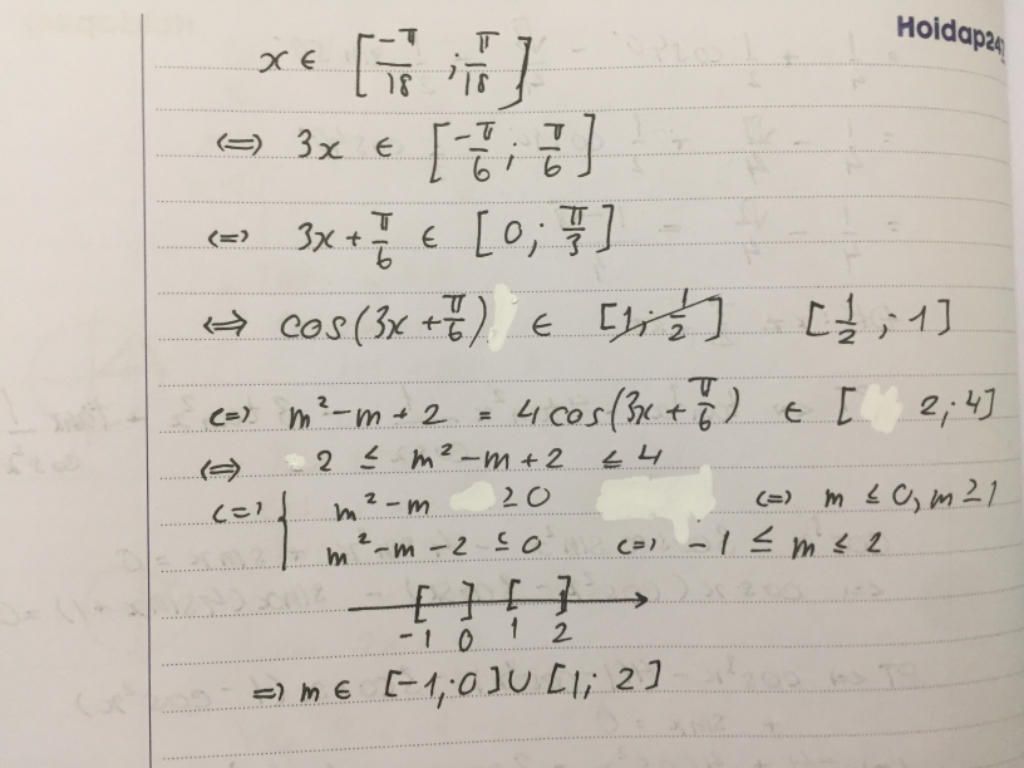 Hoidap247
x ∈ [-π/18 ; π/18]
<=> 3x ∈ [-π/6 ; π/6]
<=> 3x + π/6 ∈ [0 ; π/3]
<=> cos(3x + π/6) ∈ [1 ; 1/2] [1/2 ; 1]
<=> m² - m + 2 = 4cos(3x + π/6) ∈ [ 2 ; 4]
<=> 2 ≤ m² - m + 2 ≤ 4
<=> { m² - m ≥ 0 <=> m ≤ 0, m ≥ 1
m² - m - 2 ≤ 0 <=> -1 ≤ m ≤ 2
[ ] [ ]
-1 0 1 2
=> m ∈ [-1 ; 0] ∪ [1 ; 2]